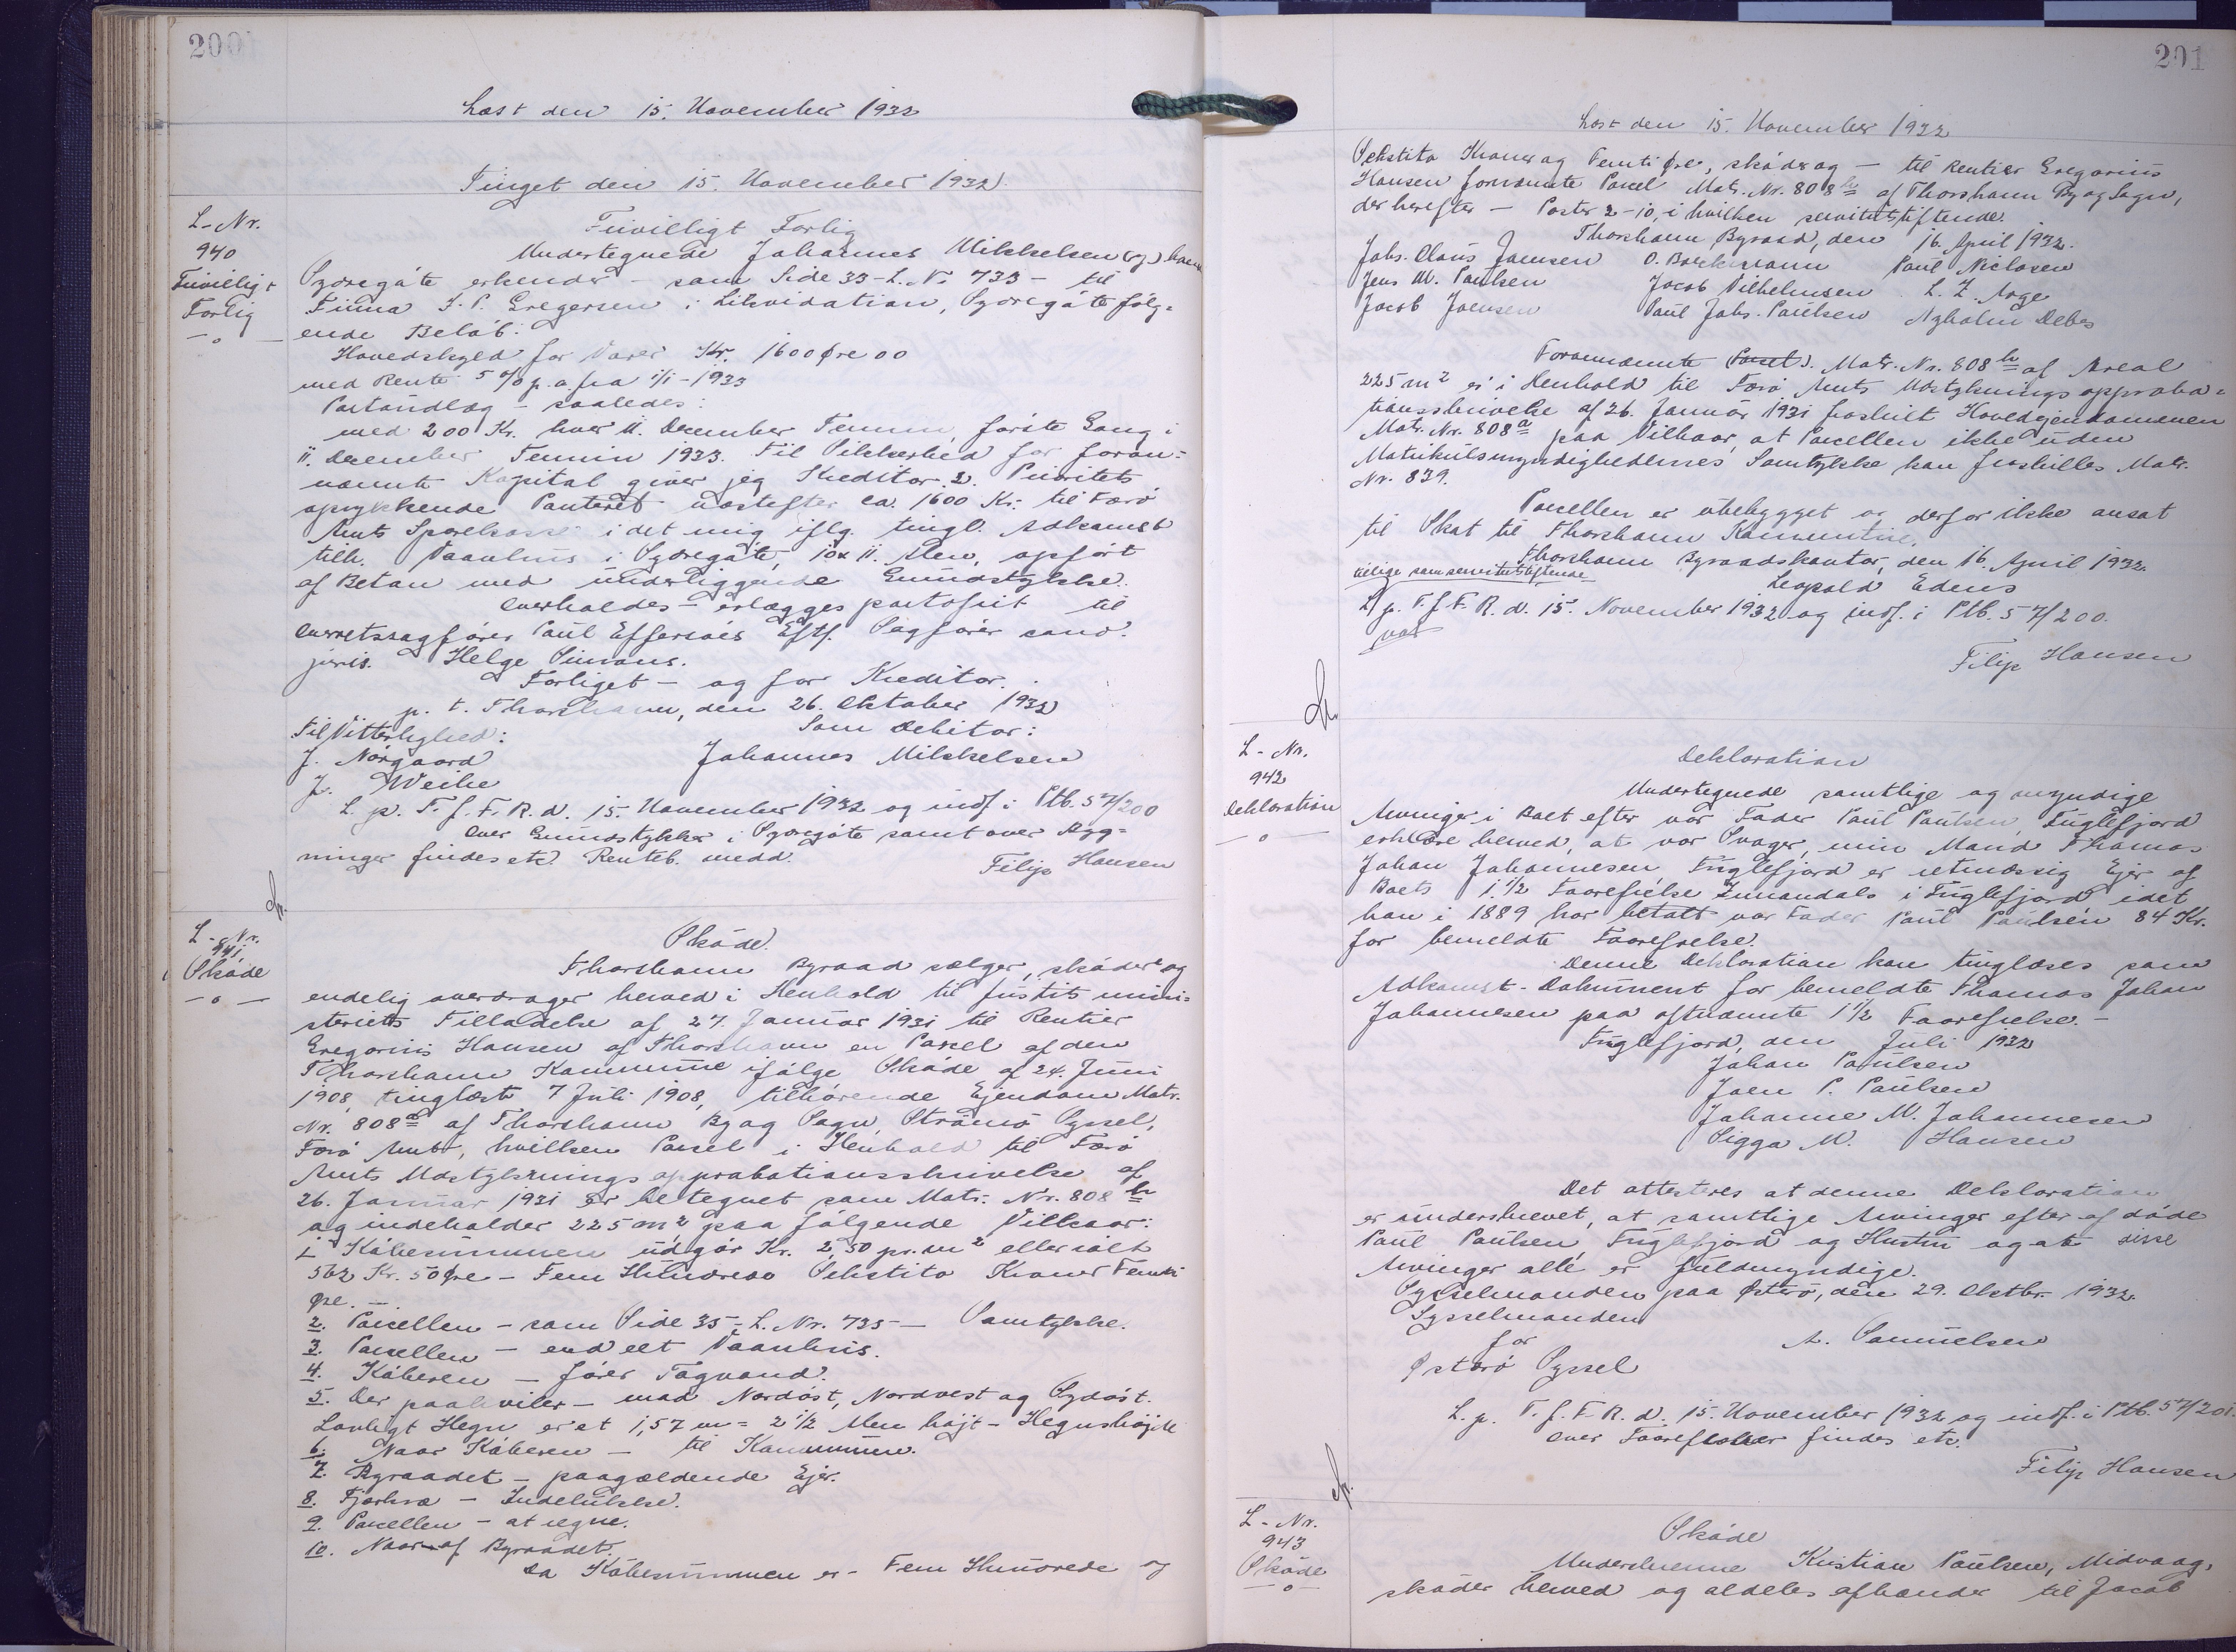 200
Læst den 15. November 1932
Tinget den 15. November 1932.
L-Nr.
940
Frivilligt
Forlig
Frivilligt Forlig
Undertegnede Johannes Mikkelsen
Sydregöte erkender - som Side 33-L.Nr 733 - til
Firma J. P. Gregersen i Likvidation, Sydregöte følg-
ende Beløb:
Hovedskyld for Varer Kr. 1600 Øre 00
med Rente 5 % p.a. fra 1/1-1933
Portoudlæg - saaledes:
med 200 Kr. hver 11. December Termin, første Gang i
11. December Termin 1933. Til Sikkerhed for foran-
nævnte Kapital giver jeg Kreditor 2. Prioritets
oprykkende Panteret næstefter ca. 1600 Kr. til Færø
Amts Sparekasse i det mig iflg. tingl. Adkomst
tilh. Vaanhus i Sydregöte, 10x11 Alen, opført
af Beton med underliggende Grundstykke.
Overholdes - erlægges portofrit til
Overretssagfører Paul Effersøes Eftf. Sagfører cand.
juris. Helge Simons.
Forliget - og for Kreditor.
p. t. Thorshavn, den 26. Oktober 1932
Til Vitterlighed: Som Debitor:
J. Nørgaard Johannes Mikkelsen
J. Weihe
L. p. T. f. F. R. d. 15. November 1932 og indf. i Ptb. 57/200
Over Grundstykker i Sydregöte samt over Byg-
ninger findes etc. Renteb. medd.
Filip Hansen
L-Nr.
941
Skøde
Skøde.
Thorshavn Byraad sælger, skøder og
endelig overdrager herved i Henhold til Justitsmini-
steriets Tilladelse af 27. Januar 1931 til Rentier
Gregorius Hansen af Thorshavn en Parcel af den
Thorshavn Kommune ifølge Skøde af 24. Juni
1908, tinglæst 7 Juli 1908, tilhørende Ejendom Matr.
Nr. 808a af Thorshavn By og Sogn, Strømø Syssel,
Færø Amt, hvilken Parcel i Henhold til Færø
Amts Udstyknings approbationsskrivelse af
26. Januar 1931 er betegnet som Matr. Nr. 808 h
og indeholder 225 m2 paa følgende Vilkaar:
1 Købesummen udgør Kr. 2,50 pr. m2 eller ialt
562 Kr. 50 Øre - Fem Hundrede Sekstito Kroner Femti
Øre. -
2. Parcellen - som Side 35 - L. Nr. 735 - Samtykke.
3. Parcellen - end eet Vaanhus.
4. Køberen - fører Tagvand.
5. Der paahviler - mod Nordøst, Nordvest og Sydøst.
Lovligt Hegn er et 1,57 m = 2 1/2 Alen højt - Hegnshøjde
6. Naar Køberen - til Kommunen.
7. Byraadet - paagældende Ejer.
8. Fjerkræ - Indelukke.
9. Parcellen - at regne.
10. Naar - af Byraadet.
Da Købesummen er - Fem Hundrede og
201
Læst den 15. November 1932
Sekstito Kroner og Femti Øre, skøder og - til Rentier Gregorius
Hansen fornævnte Parcel Matr. Nr. 808h af Thorshavn By og Sogn,
der herefter - Poster 2-10, i hvilken servitutstiftende.
Thorshavn Byraad, den 16. April 1932.
Johs. Claus Joensen O. Backmann Paul Niclasen
Jens M. Paulsen Jacob Vilhelmsen L. Z. Aage
Jacob Joensen Paul Johs. Paulsen Agholm Debes
Forannævnte (Parcel). Matr. Nr. 808h af Areal
225 m2 er i Henhold til Færø Amts Udstyknings approba-
tionsskrivelse af 26. Januar 1931 fraskilt Hovedejendommen
Matr. Nr. 808a paa Vilkaar, at Parcellen ikke uden
Matrikulsmyndighedernes Samtykke kan fraskilles Matr.
Nr. 839.
Parcellen er ubebygget og derfor ikke ansat
til Skat til Thorshavn Kommune.
Thorshavn Byraadskontor, den 16. April 1932.
tillige som servitutstiftende
Leopold Edens
L. p. T. f. F. R. d. 15. November 1932 og indf. i Ptb. 57/200.
Filip Hansen
L-Nr.
942
Deklaration
Deklaration
Undertegnede samtlige og myndige
Arvinger i Boet efter vor Fader Paul Paulsen, Fuglefjord
erklære herved, at vor Svoger, min Mand Thomas
Johan Johannesen, Fuglefjord er retmæssig Ejer af
Boets 1 1/2 Faarefrelse Innandals i Fuglefjord, idet
han i 1889 har betalt vor Fader Paul Paulsen 84 Kr.
for bemeldte Faarefrelse.
Denne Deklaration kan tinglæses som
Adkomst-Dokument for bemeldte Thomas Johan
Johannesen paa oftnævnte 1 1/2 Faarefrelse. -
Fuglefjord, den Juli 1932
Johan Paulsen
Joen P. Paulsen
Johanne M. Johannesen
Sigga M. Hansen
Det attesteres at denne Deklaration
er underskrevet, at samtlige Arvinger efter afdøde
Paul Paulsen, Fuglefjord og Hustru og at disse
Arvinger alle er fuldmyndige.
Sysselmanden paa Østerø, den 29. Oktbr. 1932.
Sysselmanden
for A. Samuelsen
Østerø Syssel
L. p. T. f. F. R. d. 15. November 1932 og indf. i Ptb. 57/201.
Over Faarefrelser findes etc.
Filip Hansen
L-Nr.
943
Skøde
Skøde
Underskrevne Kristian Paulsen, Midvaag,
skøder herved og aldeles afhænder til Jacob